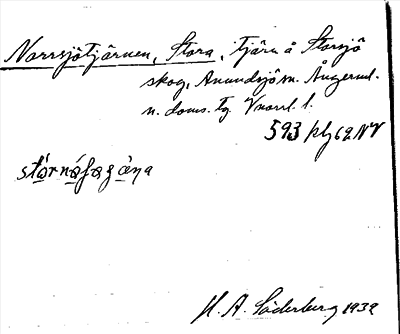 Norrsjötjärnen, Stora, tjärn å Storsjö
skog, Anundsjö sn. Ångerml.
n. doms. Tg Vnorrl. l.
593 kbl 62 NV
H. A. Söderberg 1932